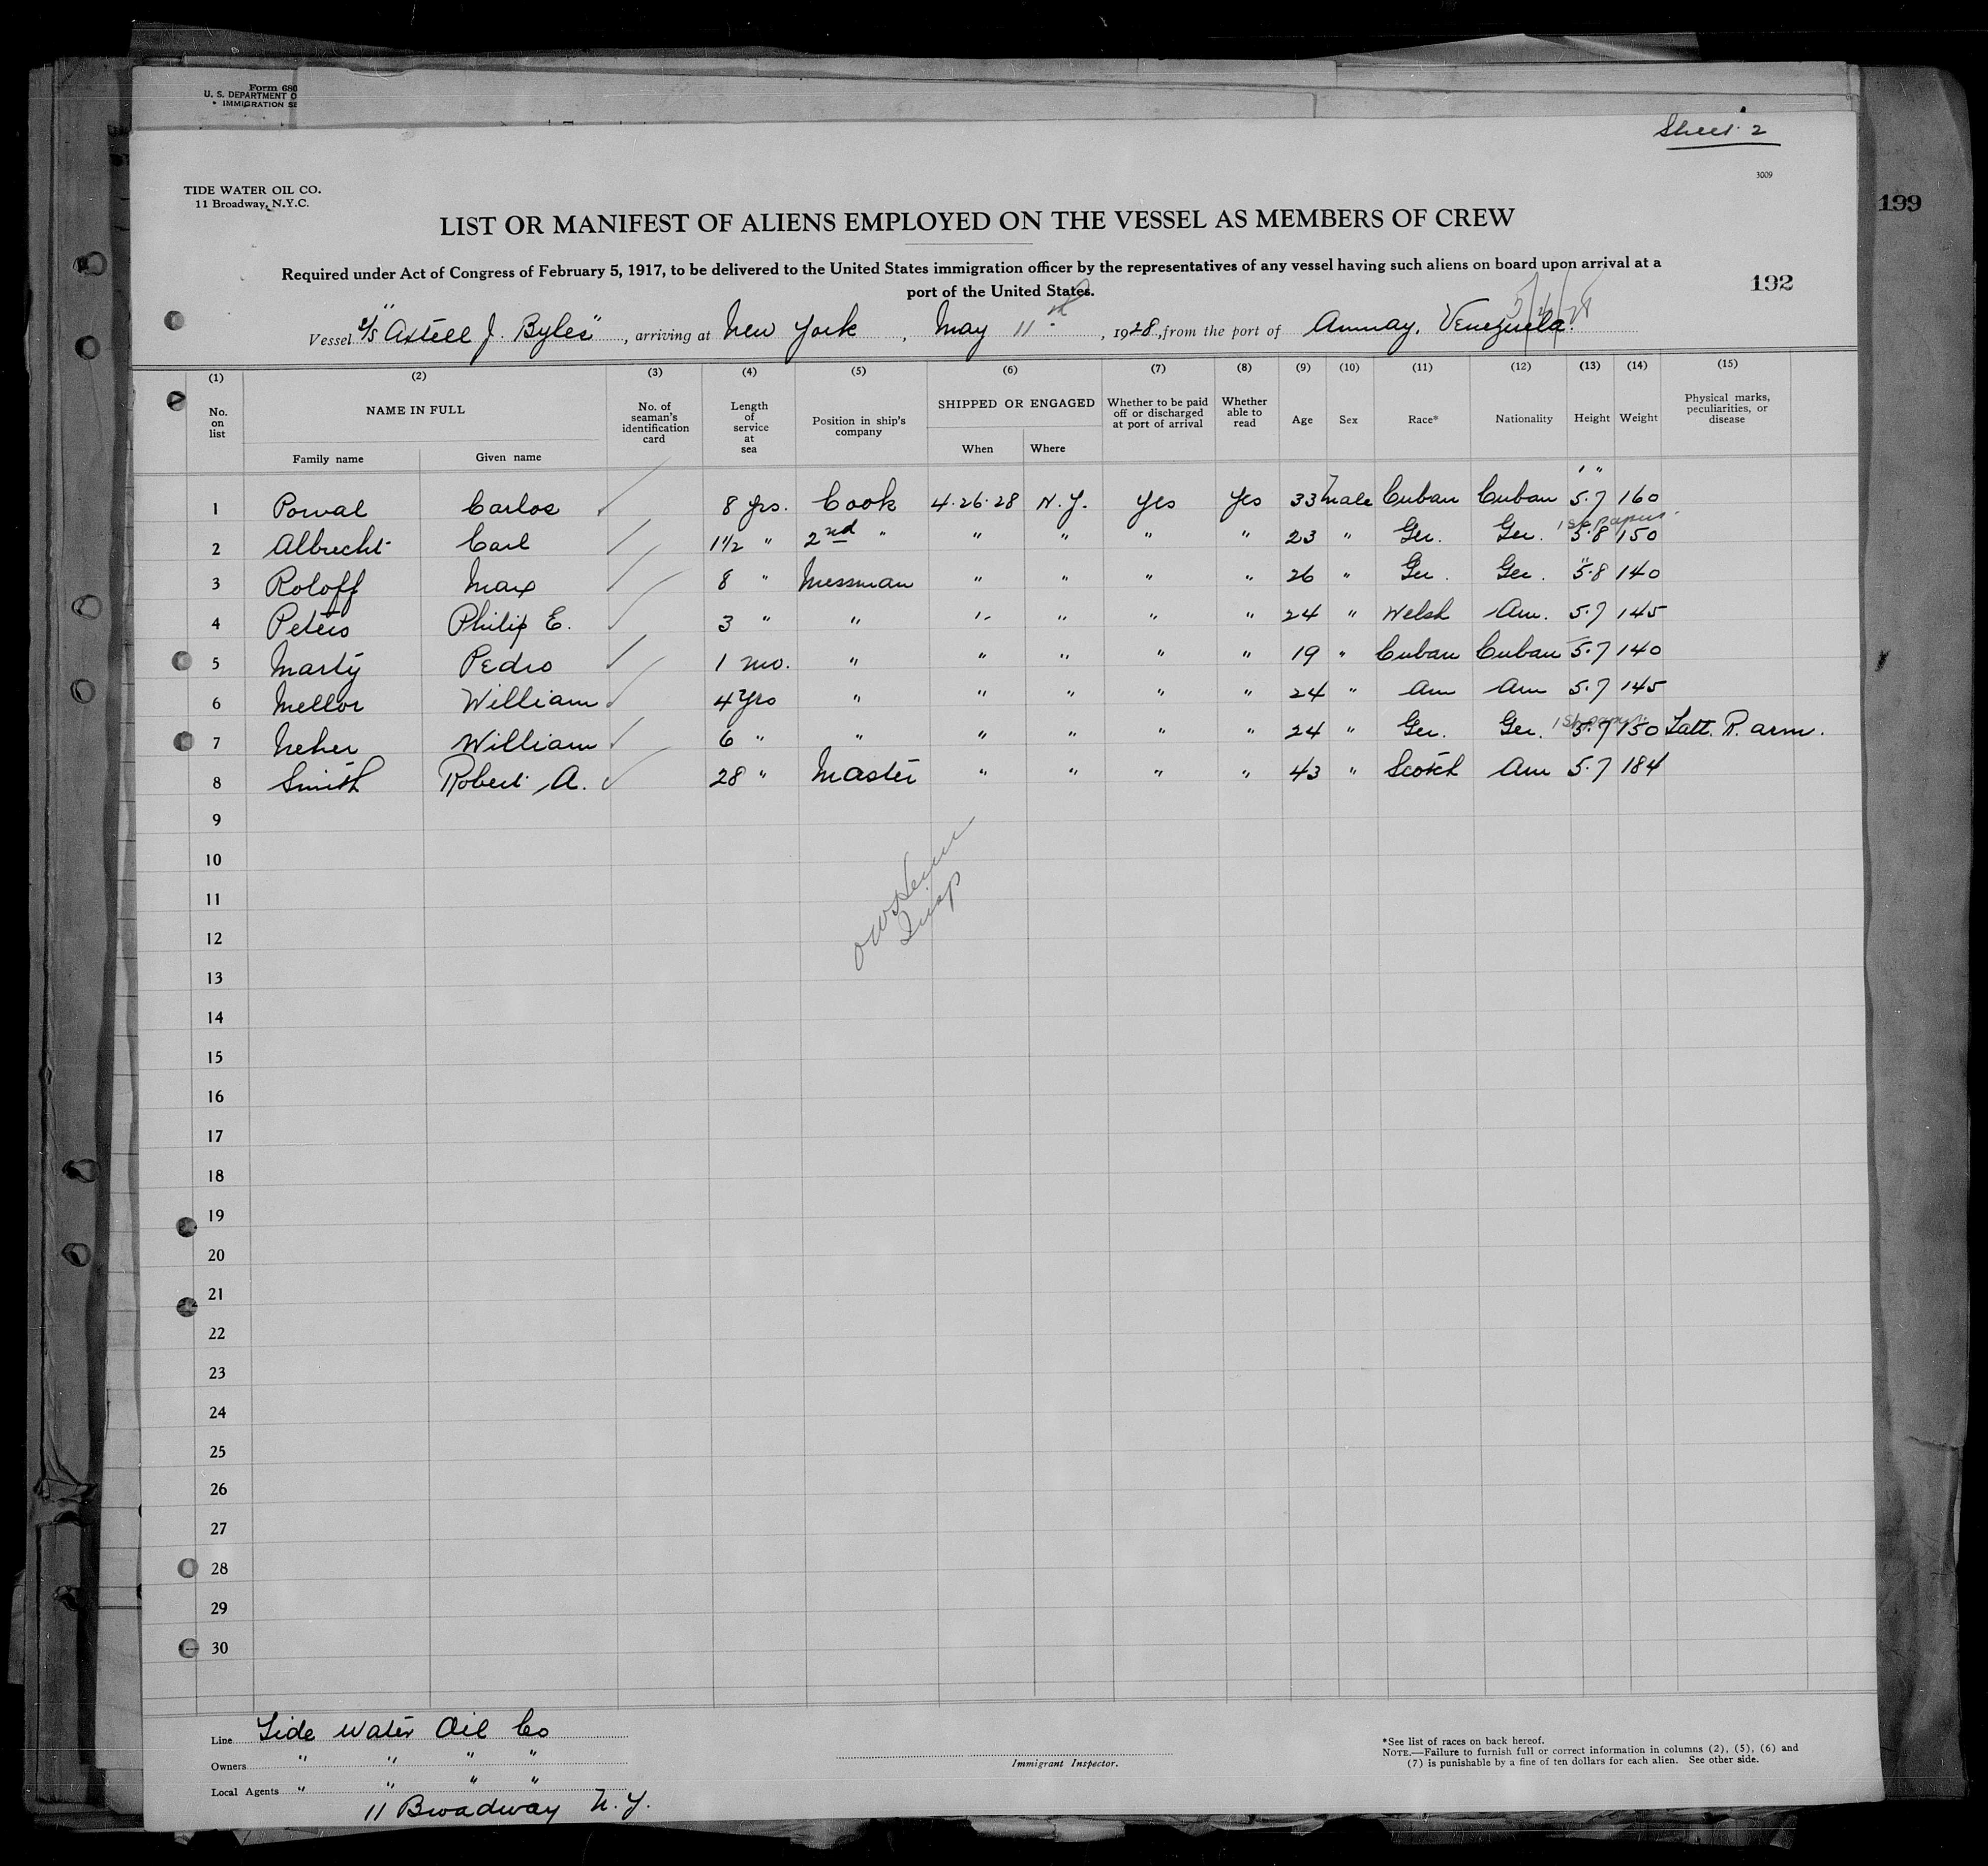 Form 680
U. S. DEPARTMENT O
IMMIGRATION SE
Sheet 2
3009
TIDE WATER OIL CO.
11 Broadway, N.Y.C.
199
LIST OR MANIFEST OF ALIENS EMPLOYED ON THE VESSEL AS MEMBERS OF CREW
Required under Act of Congress of February 5, 1917, to be delivered to the United States immigration officer by the representatives of any vessel having such aliens on board upon arrival at a
port of the United States.
192
Vessel S/S "Axtell J. Byles", arriving at New York, May 11th, 1928, from the port of Amuay, Venezuela.
(1) (2) (3) (4) (5) (6) (7) (8) (9) (10) (11) (12) (13) (14) (15)
No. on list NAME IN FULL Family name Given name No. of seaman's identification card Length of service at sea Position in ship's company SHIPPED OR ENGAGED When Where Whether to be paid off or discharged at port of arrival Whether able to read Age Sex Race* Nationality Height Weight Physical marks, peculiarities, or disease
1 Porval Carlos ✓ 8 yrs. Cook 4-26-28 N.Y. Yes Yes 33 male Cuban Cuban 5'7" 160
2 Albrecht Carl ✓ 1½ " 2nd " " " " " 23 " Ger. Ger. 1st papers 5.8 150
3 Roloff Max ✓ 8 " Messman " " " " 26 " Ger. Ger. 5.8 140
4 Peters Philip E. ✓ 3 " " " " " " 24 " Welsh Am. 5.7 145
5 Marty Pedro ✓ 1 mo. " " " " " 19 " Cuban Cuban 5.7 140
6 Mellor William ✓ 4 yrs " " " " " 24 " Am Am 5.7 145
7 Neher William ✓ 6 " " " " " " 24 " Ger. Ger. 1st papers 5.7 150 Tatt. R. arm.
8 Smith Robert A. ✓ 28 " Master " " " " 43 " Scotch Am 5.7 184
9
10
11
12
13
14
15
16
17
18
19
20
21
22
23
24
25
26
27
28
29
30
Insp
Line Tide Water Oil Co
Owners " " " "
Local Agents " " " "
11 Broadway N.Y.
Immigrant Inspector.
*See list of races on back hereof.
NOTE.—Failure to furnish full or correct information in columns (2), (5), (6) and
(7) is punishable by a fine of ten dollars for each alien. See other side.